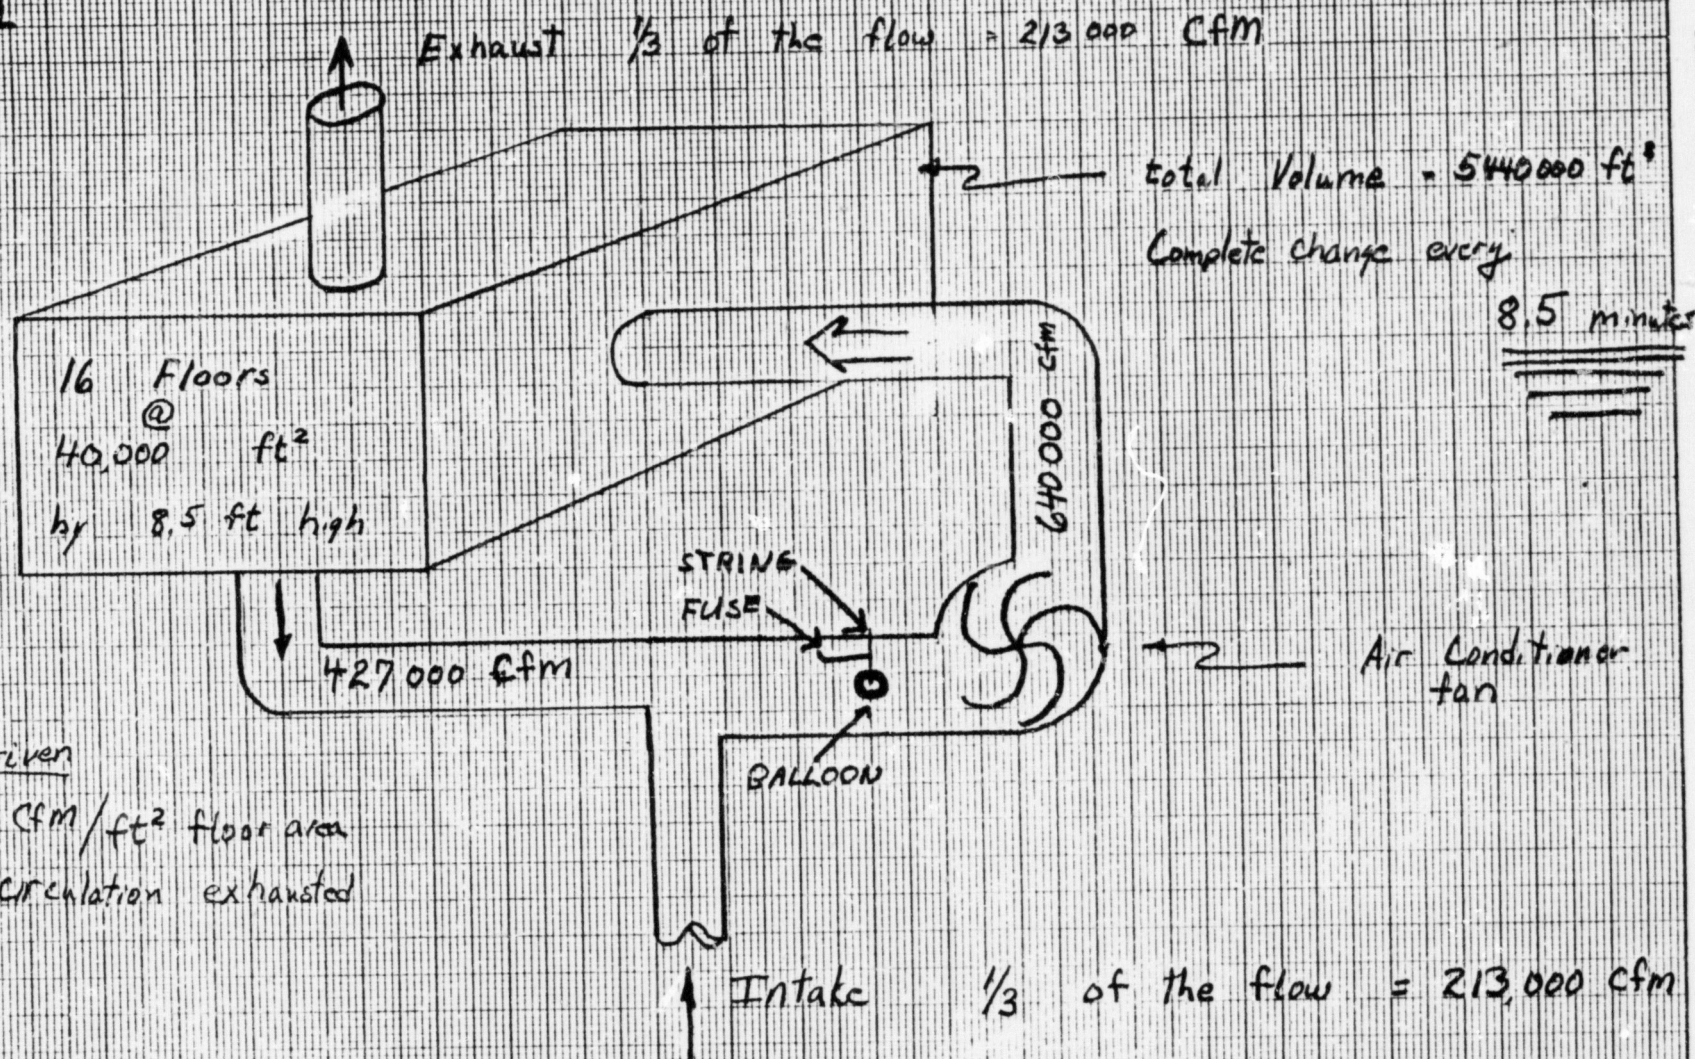 Exhaust 1/3 of the flow = 213 000 Cfm
total Volume = 5440000 ft³
Complete change every
8.5 minutes
16 Floors
@
40,000 ft²
by 8.5 ft high
640000 cfm
STRING
FUSE
427,000 Cfm
BALLOON
Air Conditioner
fan
riven
Cfm/ft² floor area
circulation exhausted
Intake 1/3 of the flow = 213,000 Cfm